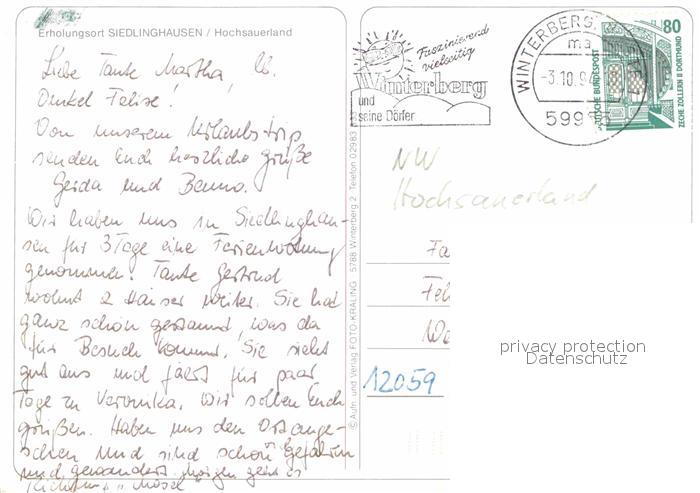 Erholungsort SIEDLINGHAUSEN / Hochsauerland
Liebe Tante Martha, lb.
Onkel Felix!
Von unserem Urlaubstrip
senden Euch herzliche Grüße
Gerda und Benno.
Wir haben uns in Siedlinghau-
sen für 3 Tage eine Ferienwohnung
genommen. Tante Gertrud
wohnt 2 Häuser weiter. Sie hat
ganz schön gestaunt, was da
für Besuch kommt. Sie sieht
gut aus und fährt für paar
Tage zu Veronika. Wir sollen Euch
grüßen. Haben uns den Ort ange-
sehen und sind schön gefahren
und gewandert. Morgen geht es
Richtung Mosel
© Aufn. und Verlag FOTO-KRALING 5788 Winterberg 2 Telefon 0 2983
Faszinierend
vielseitig
Winterberg
und
seine Dörfer
WINTERBERG
-3.10.9
599
80
DEUTSCHE BUNDESPOST
ZECHE ZOLLERN II DORTMUND
NW
Hochsauerland
Fa
Fel
We
12059
privacy protection
Datenschutz